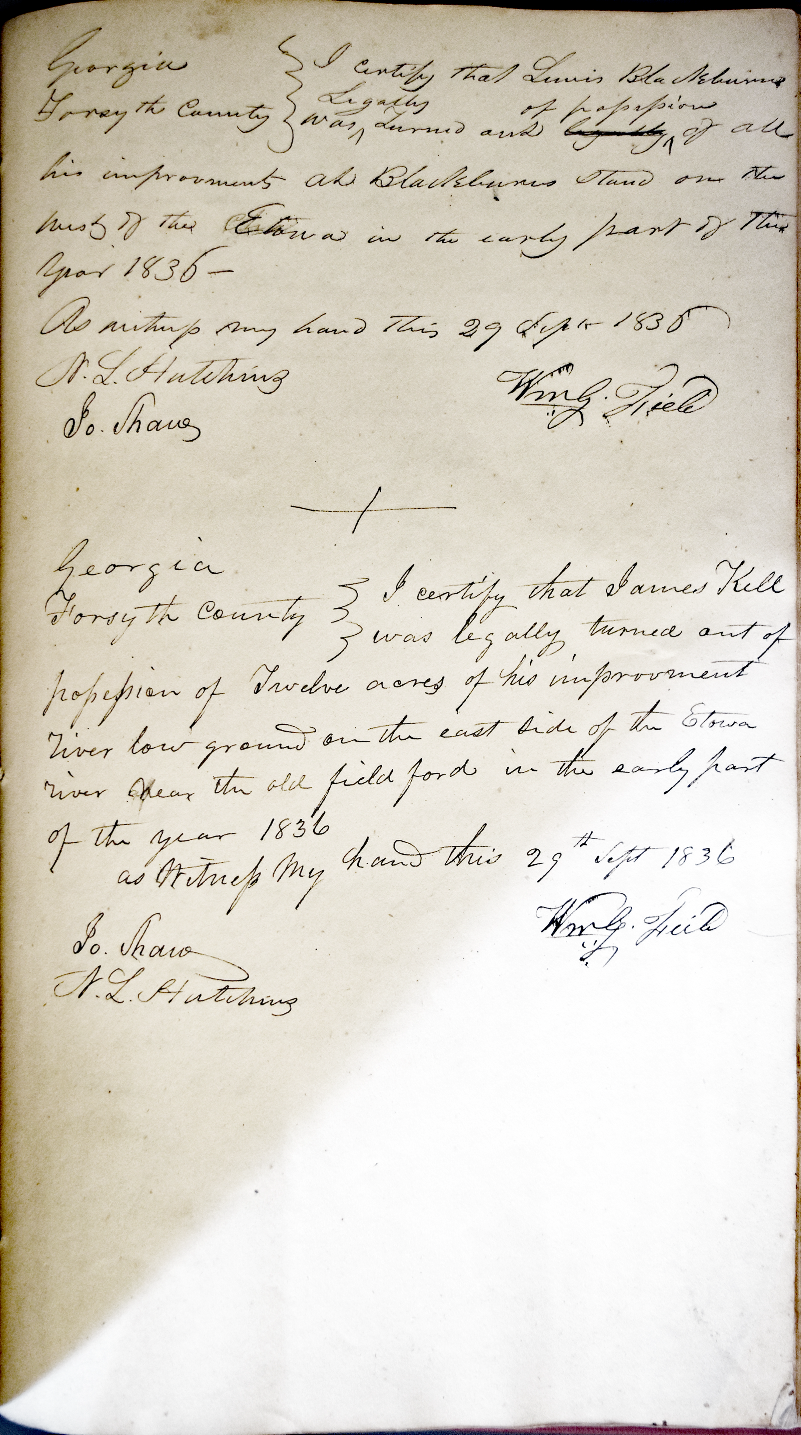 Georgia } I certify that Lewis Blackburn
Forsyth County } was ^Legally turned out ~~legally~~ ^of possession of all
his improvments at Blackburns Stand on the
west of the Etowa in the early part of this
year 1836 —
As witness my hand this 29 Sept 1836
N. L. Hutchins
Wm G. Field
Jo. Shaw
Georgia
Forsyth County } I certify that James Kell
was legally turned out of
possession of Twelve acres of his improovment
river low ground on the east side of the Etowa
river near the old field ford in the early part
of the year 1836
as Witness My hand this 29th Sept 1836
Wm G. Field
Jo. Shaw
N. L. Hutchins